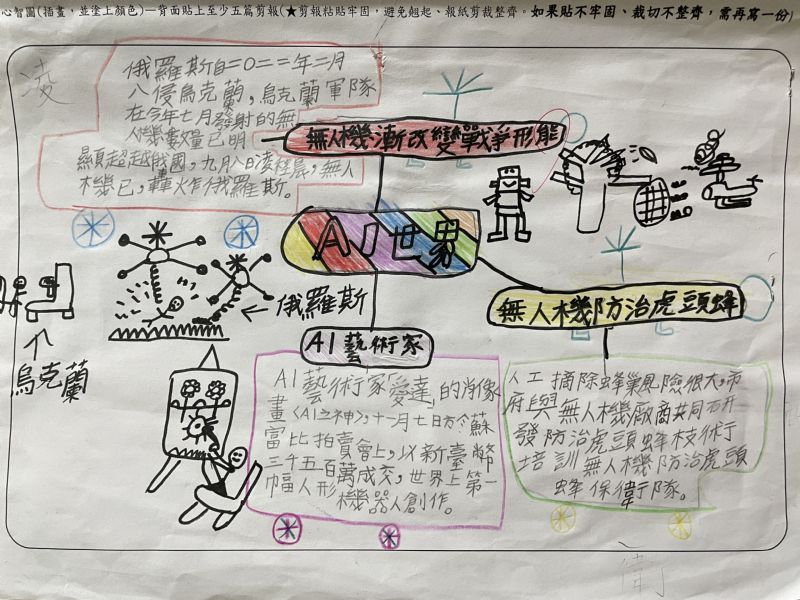 心智圖(插畫，並塗上顏色)—背面貼上至少五篇剪報(★剪報粘貼牢固，避免翹起、報紙剪裁整齊。如果貼不牢固、裁切不整齊，需再寫一份)
凌
俄羅斯自二〇二二年二月
入侵烏克蘭，烏克蘭軍隊
在今年七月發射的無
人機數量已明
顯超越俄國，九月八日凌晨，無人
機已轟炸俄羅斯。
無人機漸改變戰爭形態
AI世界
無人機防治虎頭蜂
←俄羅斯
AI藝術家
烏克蘭
AI藝術家「愛達」的肖像
畫〈AI之神〉，十一月七日於蘇
富比拍賣會上，以新臺幣
三千五百萬成交，世界上第一
幅人形機器人創作。
人工摘除蜂巢風險很大，市
府與無人機廠商共同研
發防治虎頭蜂技術行
培訓無人機防治虎頭
蜂保衛隊。
衛